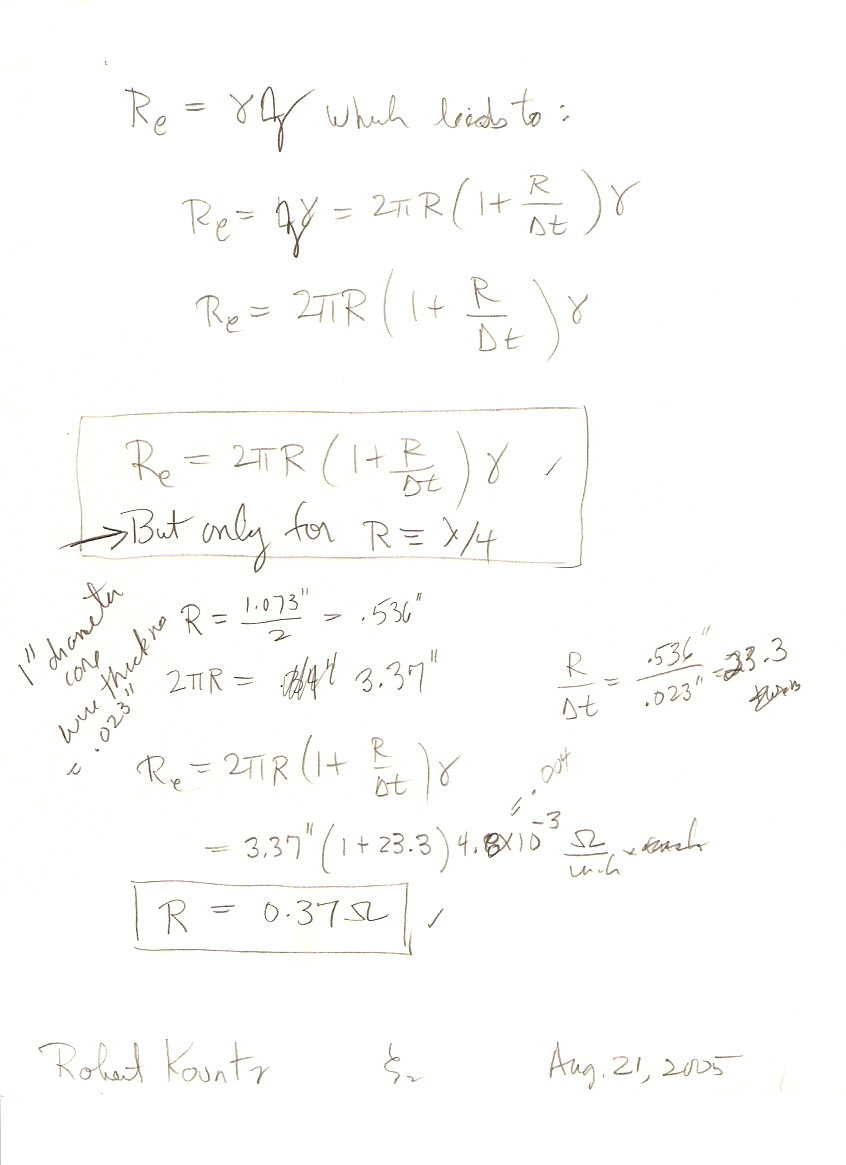 Re = γ which leads to:
Re = γ = 2πR(1+ R/Δt)γ
Re = 2πR(1+ R/Δt)γ
Re = 2πR(1+ R/Δt)γ ✓
→But only for R ≡ λ/4
1" diameter
core
wire thickness
= .023"
R = 1.073"/2 = .536"
2πR = 3.37"
R/Δt = .536"/.023" = 23.3
Re = 2πR(1+ R/Δt)γ
= .004
= 3.37"(1+23.3)4.8x10⁻³ Ω/inch
R = 0.37Ω ✓
Robert Kountz Aug. 21, 2005